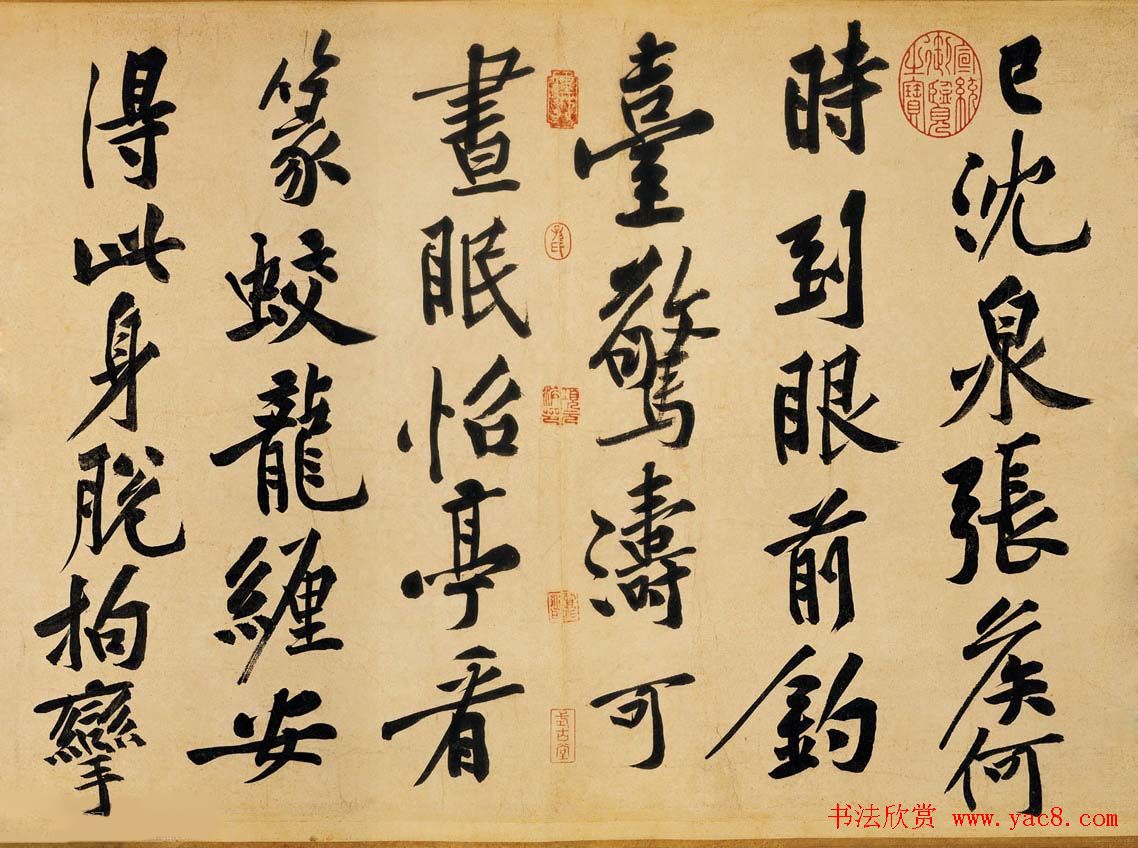 已沈泉張矦何
時到眼前釣
臺驚濤可
晝眠怡亭看
篆蛟龍纏安
得此身脫拘攣
宣統御覽之寶
式古堂
书法欣赏 www.yac8.com